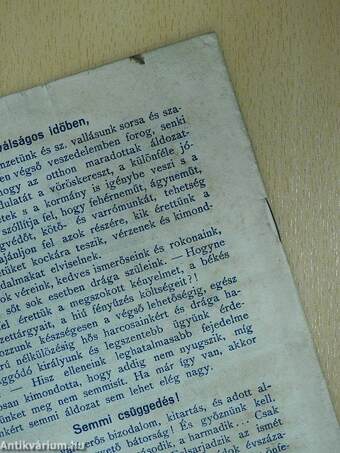 válságos időben,
nzetünk és sz. vallásunk sorsa és sza-
en végső veszedelemben forog, senki
hogy az otthon maradottak áldozat-
dulatát a vöröskereszt, a különféle jó-
etek s a kormány is igénybe veszi s a
szólítja fel, hogy fehérneműt, ágyneműt,
gvédőt, kötő- és varrómunkát, tehetség
ajánljon fel azok részére, kik érettünk a
tüket kockára teszik, vérzenek és kimond-
dalmakat elviselnek.
ok véreink, kedves ismerőseink és rokonaink,
sőt sok esetben drága szüleink. — Hogyne
fel érettük a megszokott kényelmet, a békés
zettárgyait, a hiú fényűzés költségeit?!
ozzunk készségesen a végső lehetőségig, egész
rú nélkülözésig hős harcosainkért és drága ha-
ggódó királyunk és legszentebb ügyünk érde-
— Hisz elleneink leghatalmasabb fejedelme
osan kimondotta, hogy addig nem nyugszik, míg
ünket meg nem semmisít. Ha már így van, akkor
nkért semmi áldozat sem lehet elég nagy.
Semmi csüggedés!
erős bizodalom, kitartás, és adott al-
vető bátorság! És győznünk kell.
második, a harmadik... Csak
adódjék az ismét
ások évszáza-
Antikvárium.hu